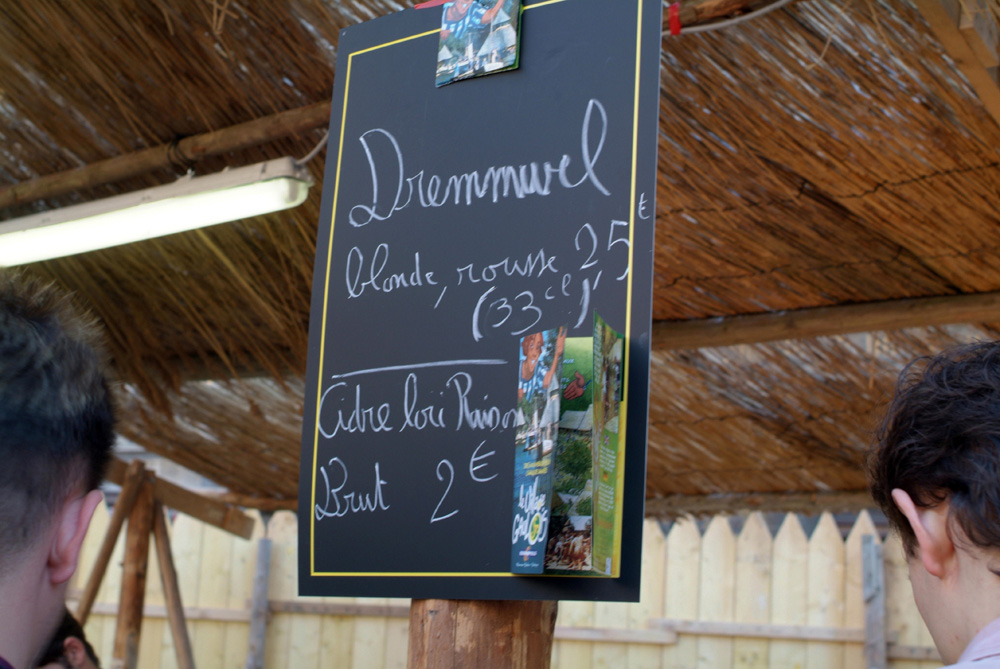 Dremmwel
blonde, rousse 25€
(33cl)
Cidre loïc Raison
Brut 2€
Le Village
Gaulois